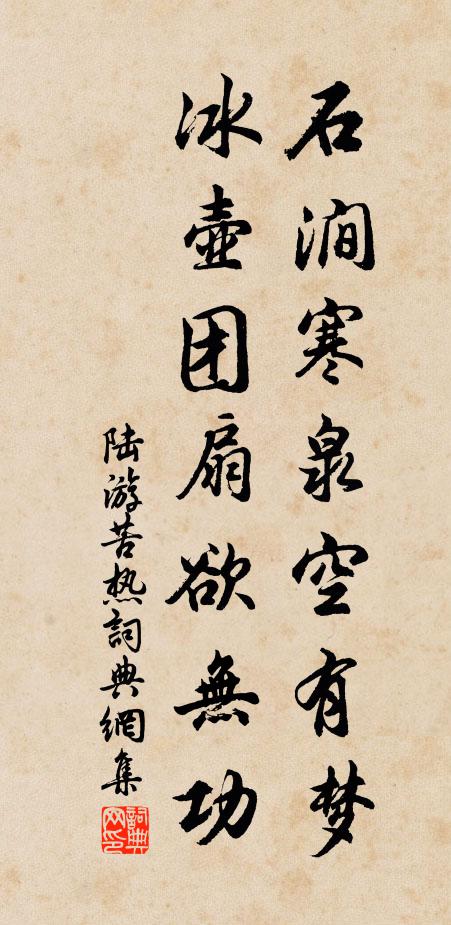 石涧寒泉空有梦
冰壶团扇欲無功
陆游苦热詞典網集
詞典网印